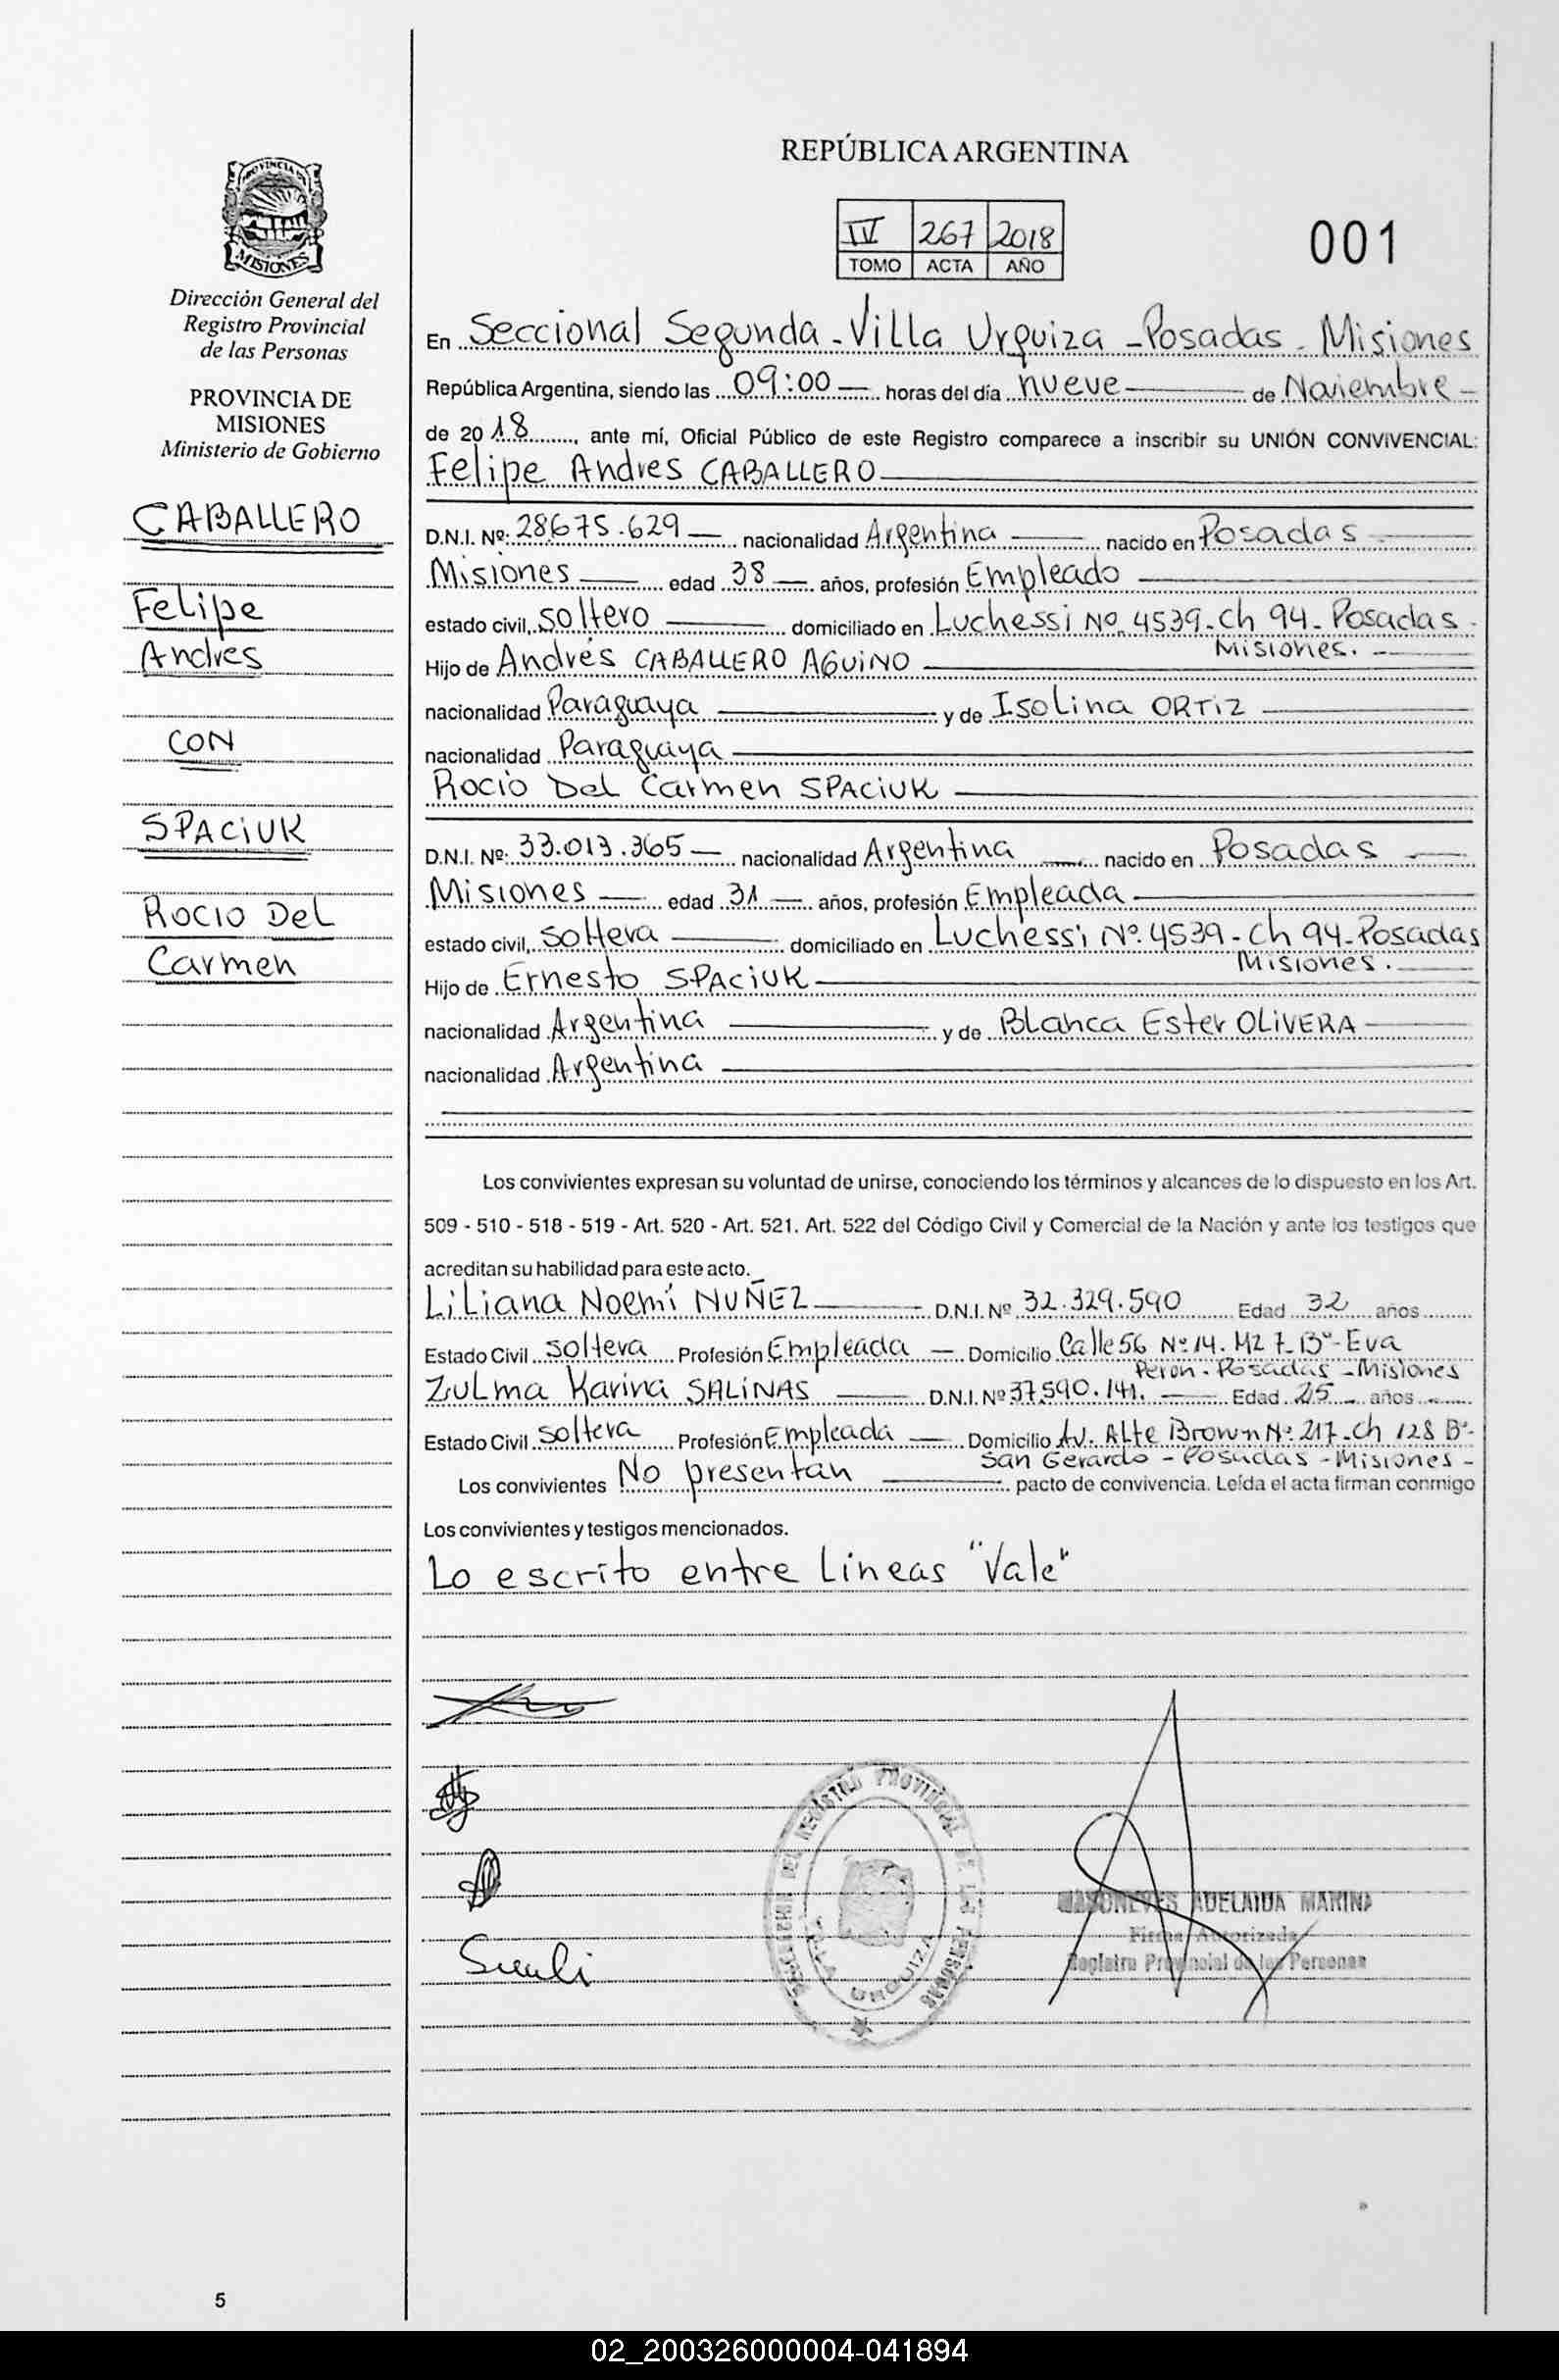 PROVINCIA DE
MISIONES
Dirección General del
Registro Provincial
de las Personas
PROVINCIA DE
MISIONES
Ministerio de Gobierno
CABALLERO
Felipe
Andres
CON
SPACIUK
Rocio Del
Carmen
5
REPÚBLICA ARGENTINA
IV 267 2018
TOMO ACTA AÑO
001
En Seccional Segunda - Villa Urquiza - Posadas - Misiones
República Argentina, siendo las 09:00 horas del día nueve de Noviembre
de 2018, ante mí, Oficial Público de este Registro comparece a inscribir su UNIÓN CONVIVENCIAL:
Felipe Andres CABALLERO
D.N.I. Nº: 28675.629 nacionalidad Argentina nacido en Posadas
Misiones edad 38 años, profesión Empleado
estado civil, soltero domiciliado en Luchessi No. 4539 - Ch 94 - Posadas -
Misiones.
Hijo de Andrés CABALLERO AQUINO
nacionalidad Paraguaya y de Isolina ORTIZ
nacionalidad Paraguaya
Rocio Del Carmen SPACIUK
D.N.I. Nº: 33.013.365 nacionalidad Argentina nacido en Posadas
Misiones edad 31 años, profesión Empleada
estado civil, soltera domiciliado en Luchessi Nº. 4539 - Ch 94 - Posadas
Misiones.
Hijo de Ernesto SPACIUK
nacionalidad Argentina y de Blanca Ester OLIVERA
nacionalidad Argentina
Los convivientes expresan su voluntad de unirse, conociendo los términos y alcances de lo dispuesto en los Art.
509 - 510 - 518 - 519 - Art. 520 - Art. 521. Art. 522 del Código Civil y Comercial de la Nación y ante los testigos que
acreditan su habilidad para este acto.
Liliana Noemi NUÑEZ D.N.I. Nº 32.329.590 Edad 32 años
Estado Civil soltera Profesión Empleada Domicilio Calle 56 Nº 14. Mz 7 Bº - Eva
Peron - Posadas - Misiones
Zulma Karina SALINAS D.N.I. Nº 37.590.141. Edad 25 años
Estado Civil soltera Profesión Empleada Domicilio Av. Alte Brown Nº 217 - Ch 128 Bº -
San Gerardo - Posadas - Misiones -
Los convivientes No presentan pacto de convivencia. Leída el acta firman conmigo
Los convivientes y testigos mencionados.
Lo escrito entre lineas "Vale"
REGISTRO PROVINCIAL DE LAS PERSONAS
VILLA URQUIZA
ADELAIDA MARINA
Firma Autorizada
Registro Provincial de las Personas
02_200326000004-041894